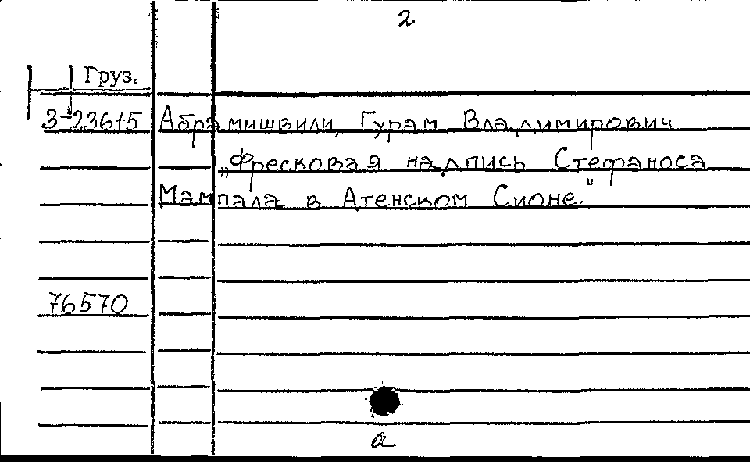 2
Груз.
3-23615 Абрамишвили, Гурам Владимирович
„Фресковая надпись Стефаноса
Мампала в Атенском Сионе."
76570
а